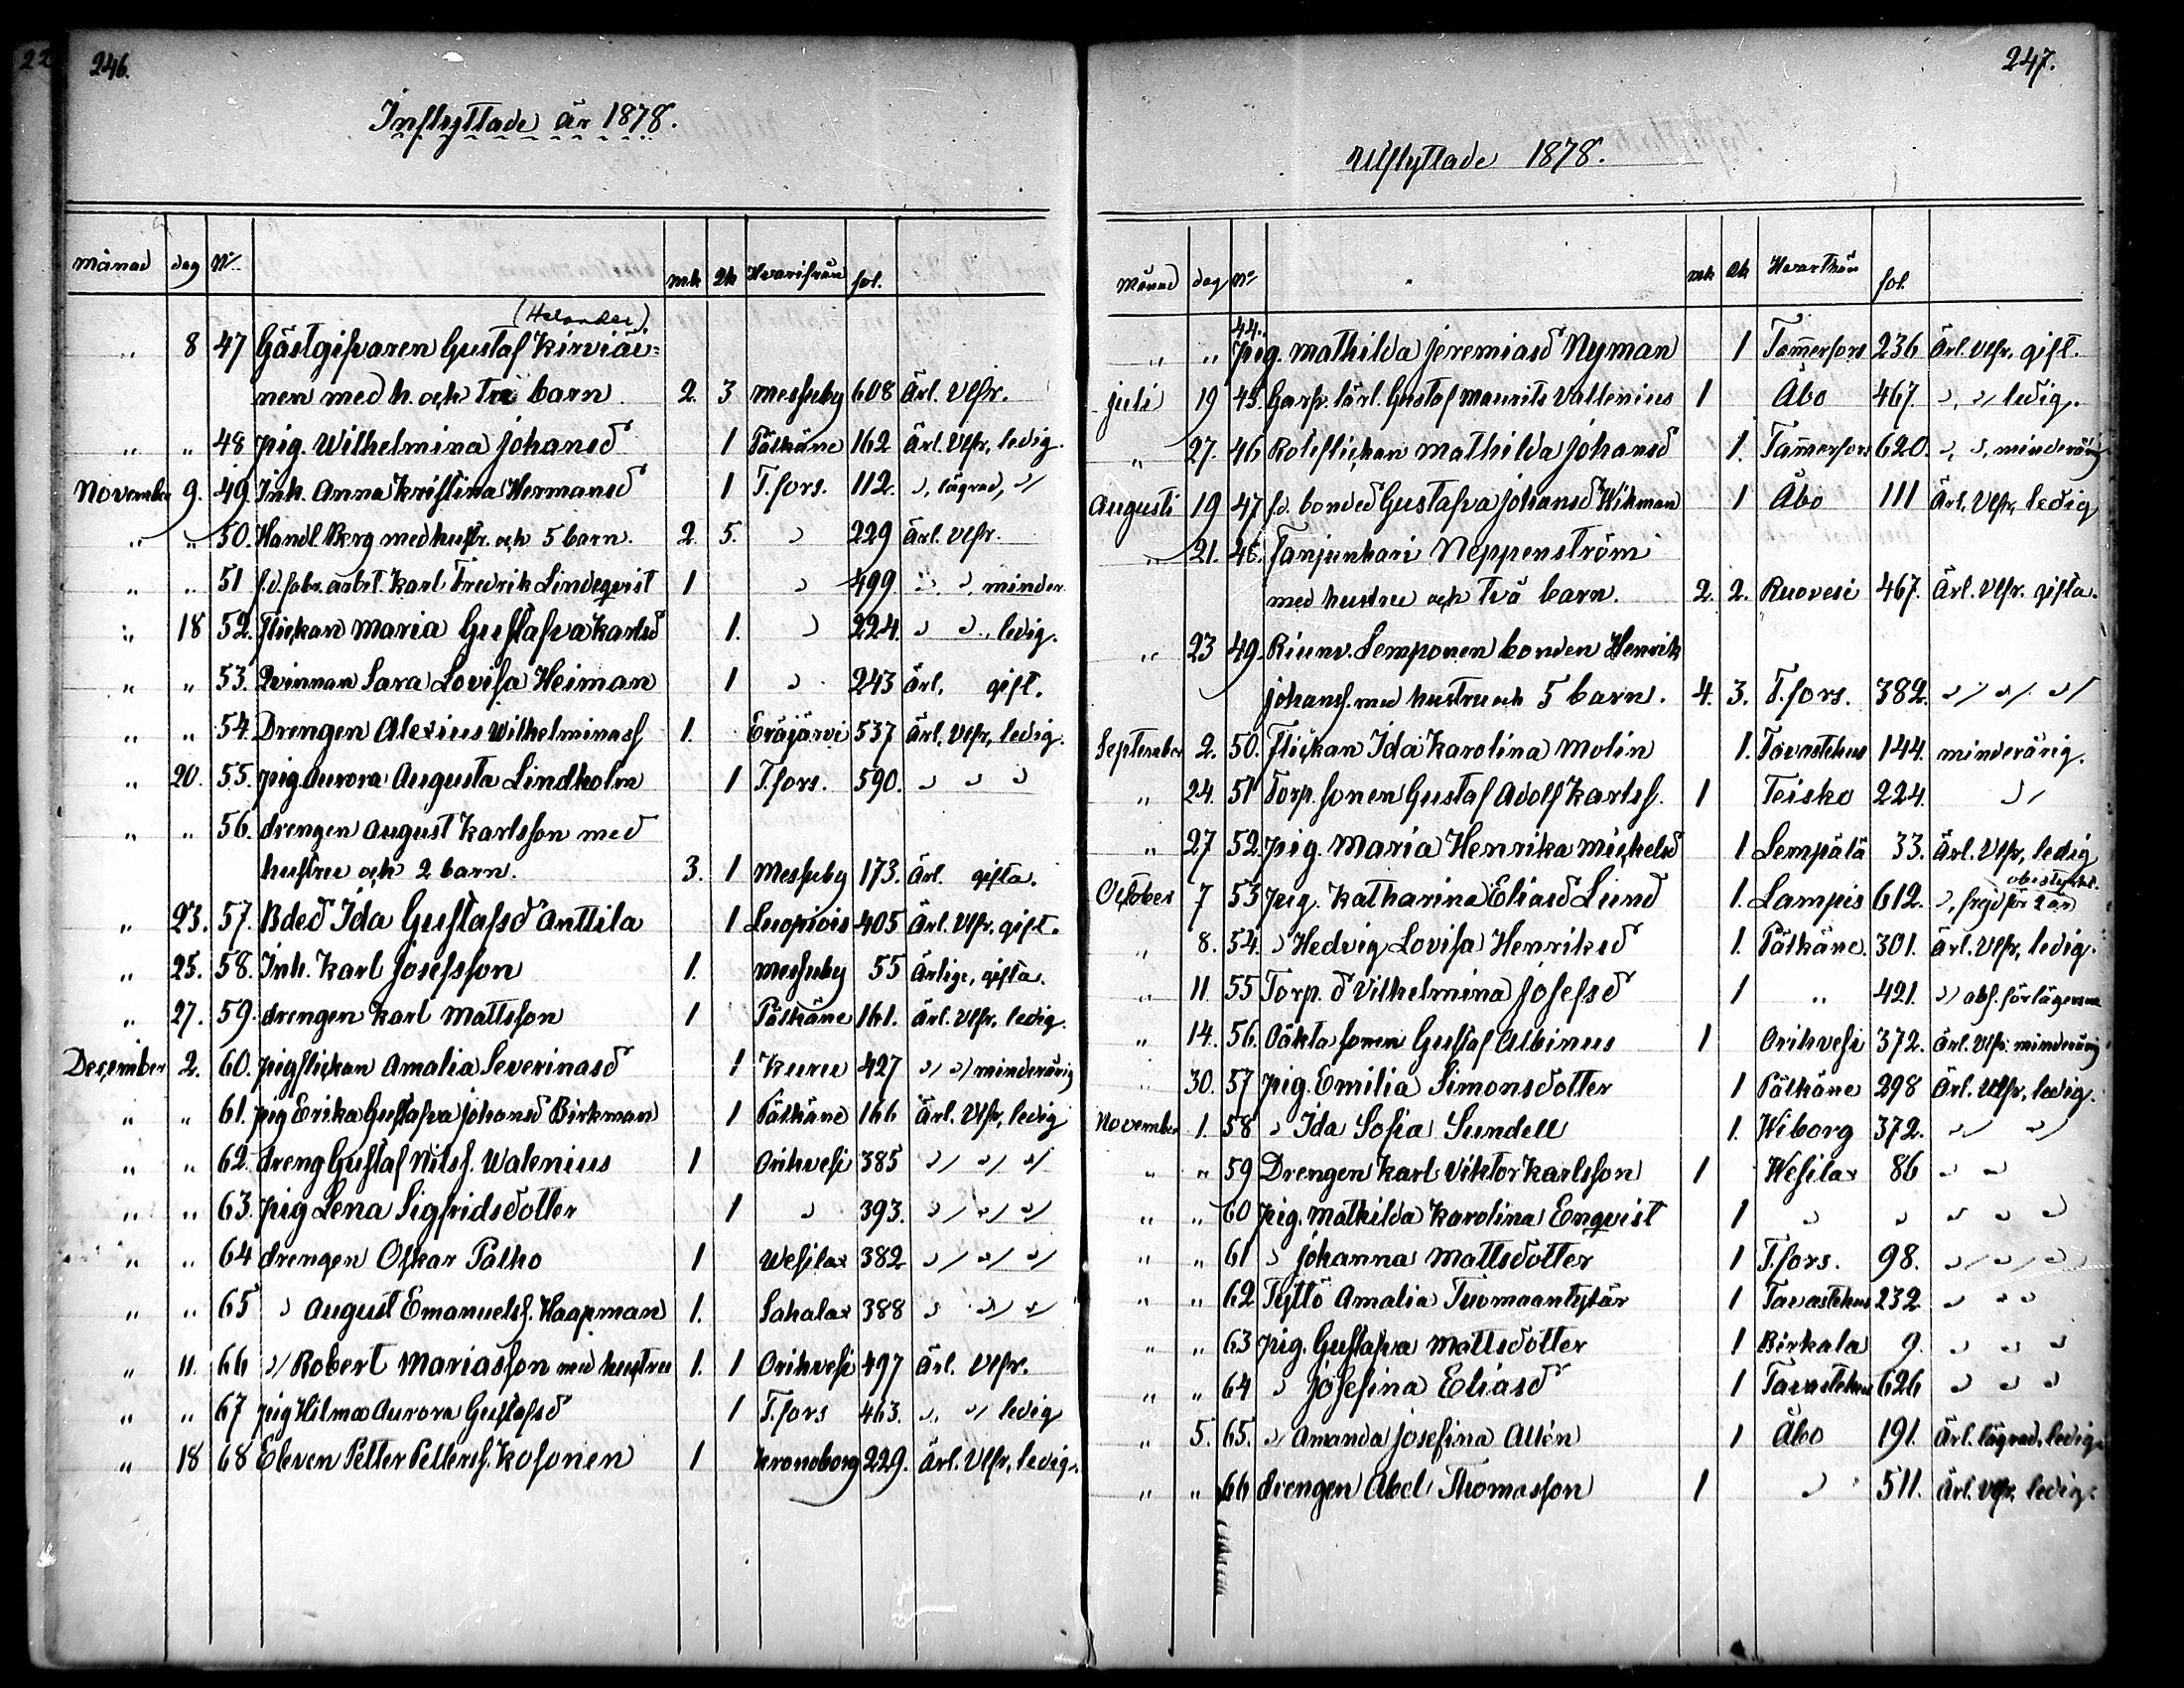 246.
Inflyttade år 1878.
månad dag No mk qk Hvarifrån fol.
(Helander)
„ 8 47 Gästgifvaren Gustaf Kirviäi=
nen med h. och tre barn 2. 3 Messuby 608 Ärl. Vlfr.
„ „ 48 pig. Wilhelmina Johansd 1 Pälkäne 162 Ärl. Vlfr, ledig.
November 9. 49. Inh. Anna Kristina Hermansd 1 T.fors. 112. „, lägrad, „
„ „ 50. Handl. Berg med hustr. och 5 barn. 2. 5. „ 229 Ärl. Vlfr.
„ „ 51 f.d. fabr. arbet. Karl Fredrik Lindeqvist 1 „ 499 „ „, minder.
„ 18 52. flickan Maria Gustafva Karlsd 1. „ 224. „ „, ledig.
„ „ 53. Qvinnan Sara Lovisa Heiman 1 „ 243 Ärl. gift.
„ „ 54. Drengen Alexius Wilhelminas. 1. Eräjärvi 537 Ärl. Vlfr, ledig.
„ 20. 55. pig. Aurora Augusta Lindholm 1 T.fors. 590. „ „ „
„ „ 56. drengen August Karlsson med
hustru och 2 barn. 3. 1 Messuby 173. Ärl. gifta.
„ 23. 57. Bded Ida Gustafsd Anttila 1 Luopiois 405 Ärl. Vlfr. gift.
„ 25. 58. Inh. Karl Josefsson 1. Messuby 55 Ärlige, gifta.
„ 27. 59. drengen Karl Mattsson 1 Pälkäne 161. Ärl. Vlfr. ledig.
December 2. 60. pigflickan Amalia Severinasd 1 Kuru 427 „ „ minderårig
„ „ 61. pig Erika Gustafva Johansd Birkman 1 Pälkäne 166 Ärl. Vlfr, ledig
„ „ 62. dreng Gustaf Nilss. Walenius 1 Orihvesi 385 „ „ „
„ „ 63. pig Lena Sigfridsdotter 1 „ 393. „ „ „
„ „ 64 drengen Oskar Palho 1 Wesilax 382 „ „ „
„ „ 65 „ August Emanuels. Haapman 1. Sahalax 388 „ „ „
„ 11. 66 „ Robert Mariasson med hustru 1. 1 Orihvesi 497 Ärl. Vlfr.
„ „ 67 pig Hilma Aurora Gustafsd 1 T.fors 463. „ „ ledig
„ 18 68 Eleven Petter Petters. Kosonen 1 Kronoborg 229. Ärl. Vlfr, ledig.
247.
Utflyttade 1878.
Månad dag No mk qk Hvarthän fol.
„ „ 44. pig. Mathilda Jeremiasd Nyman 1 Tammerfors 236 Ärl. Vlfr. gift.
Juli 19 45. Garfv. lärl. Gustaf Maurits Vallenius 1 Åbo 467. „, „ ledig.
„ 27. 46 Roteflickan Mathilda Johansd 1. Tammerfors 620. „, „, minderårig.
Augusti 19 47 f.d. bonded Gustafva Johansd Wikman 1 Åbo 111 Ärl. Vlfr, ledig
„ 21. 48. Fanjunkari Neppenström
med hustru och två barn. 2. 2. Ruovesi 467. Ärl. Vlfr. gifta.
„ 23 49. Riunv. Lemponen bonden Henrik
Johans. med hustru och 5 barn. 4. 3. T.fors. 382. „ „ „
September 2. 50. Flickan Ida Karolina Molin 1. Tavastehus 144. minderårig.
„ 24. 51 Torp. sonen Gustaf Adolf Karlss. 1 Teisko 224. „
„ 27 52. pig. Maria Henrika Mickelsd 1 Lempälä 33. Ärl. Vlfr, ledig
October 7 53 pig. Katharina Eliasd Lund 1. Lampis 612. „, frejd för 2 år
„ 8. 54. „ Hedvig Lovisa Henriksd 1. Pälkäne. 301. Ärl. Vlfr, ledig.
„ 11. 55 Torp. d Vilhelmina Josefsd 1 „ 421.
„ 14. 56. sonen Gustaf Albinus 1 Orihvesi 372. Ärl. Vlfr. minderårig
„ 30. 57 pig. Emilia Simonsdotter 1 Pälkäne 298 Ärl. Vlfr, ledig.
November 1. 58 „ Ida Sofia Sundell 1. Wiborg 372. „ „
„ „ 59 Drengen Karl Viktor Karlsson 1 Wesilax 86 „ „
„ „ 60 pig. Mathilda Karolina Enqvist 1 „ „ „ „ „
„ „ 61 „ Johanna Mattsdotter 1 T.fors. 98. „ „ „
„ „ 62 Tyttö Amalia Tuomaantytär 1 Tavastehus 232. „ „ „
„ „ 63 pig. Gustafva Mattsdotter 1 Birkala 9. „ „ „
„ „ 64 „ Josefina Eliasd 1 Tavastehus 626 „ „ „
„ 5. 65. „ Amanda Josefina Allén 1 Åbo 191. Ärl. lägrad, ledig.
„ „ 66 drengen Abel Thomasson 1 „ 511. Ärl. Vlfr, ledig.